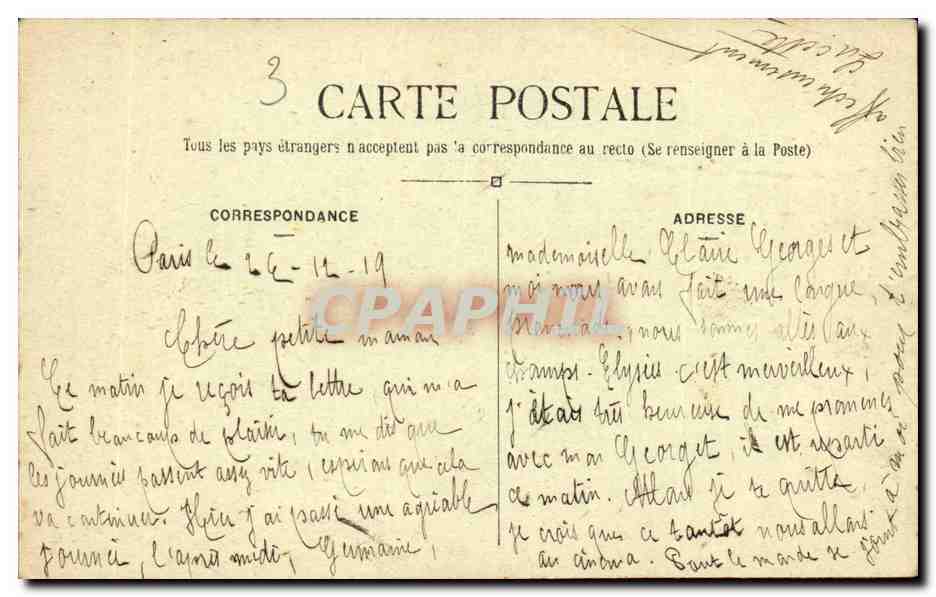 3
CARTE POSTALE
Tous les pays étrangers n'acceptent pas la correspondance au recto (Se renseigner à la Poste)
CORRESPONDANCE
Paris le 24-12-19
Chère petite maman
Ce matin je reçois ta lettre, qui m'a
fait beaucoup de plaisir, tu me dis que
les journées passent assez vite, espérons que cela
va continuer. Hier j'ai passé une agréable
journée, l'après midi, Germaine,
ADRESSE
mademoiselle Claire Georges et
moi nous avons fait une longue
promenade, nous sommes allés aux
Champs-Elysées c'est merveilleux,
j'étais très heureuse de me promener
avec mon Georget, il est reparti
ce matin. Alors je te quitte,
je crois que ce tantôt nous allons
au cinéma. Tout le monde se
joint à moi pour t'embrasser bien
affectueusement
Lucette
CPAPHIL